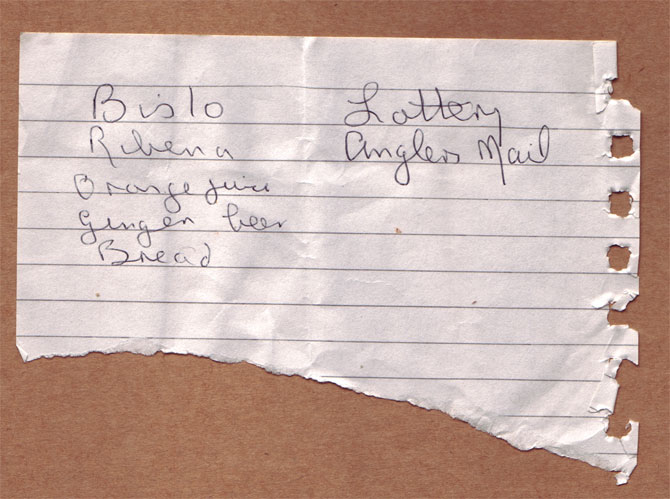 Bisto
Ribena
Orange juice
Ginger beer
Bread
Lottery
Anglers Mail